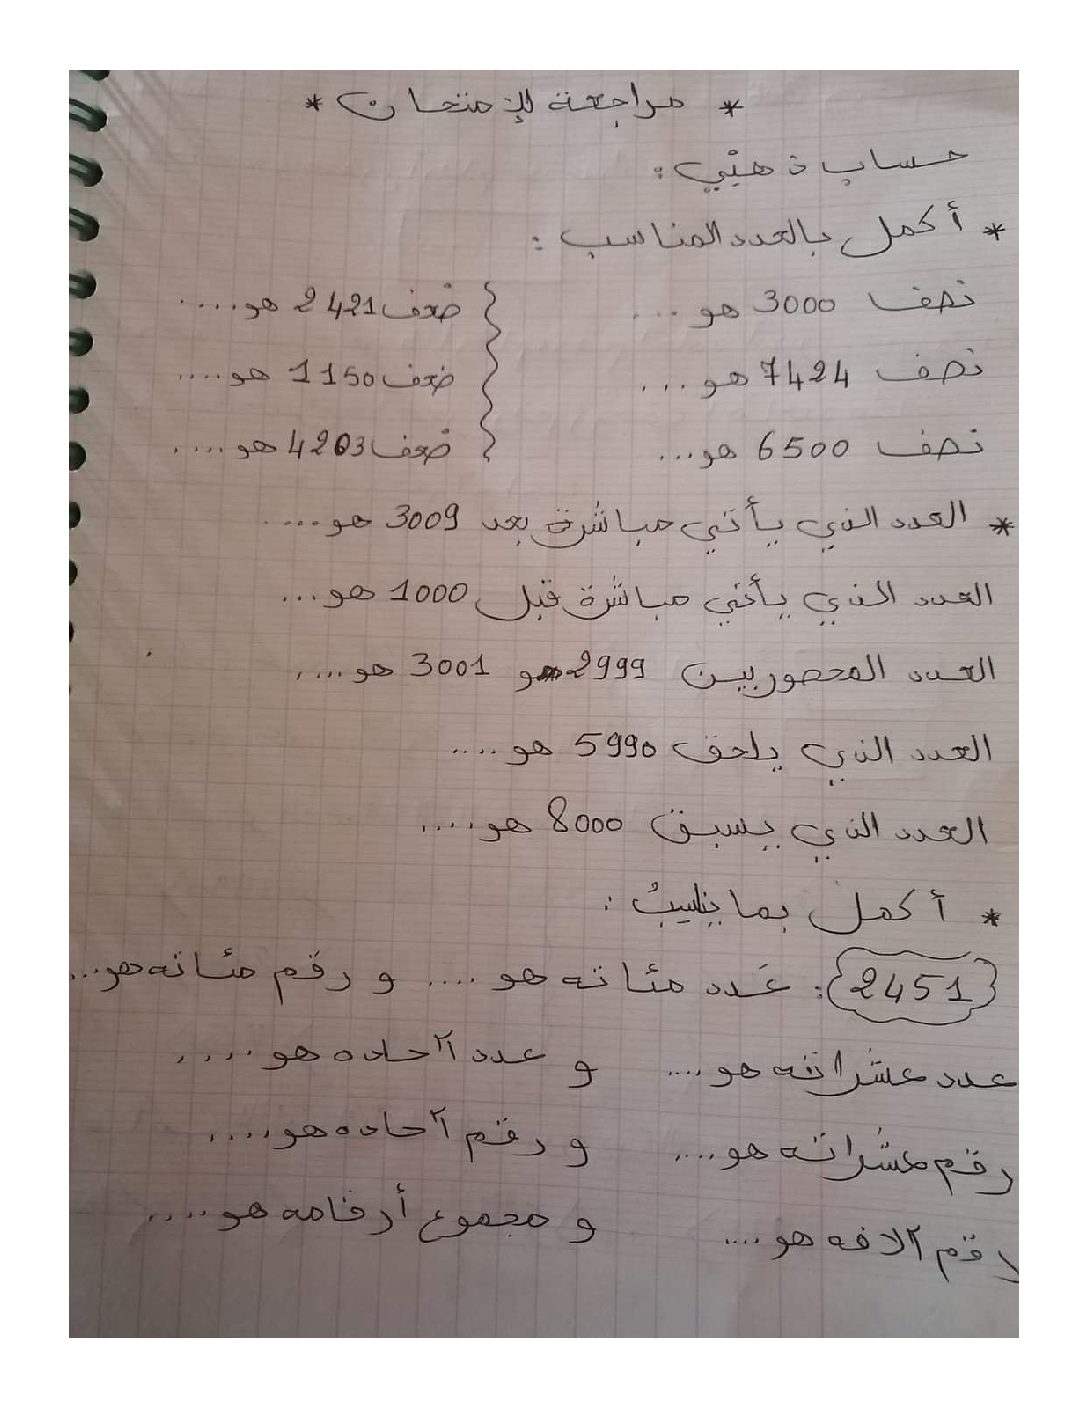 * مراجعة للإمتحان *
حساب ذهني :
* أكمل بالعدد المناسب :
نصف 3000 هو .... ضعف 2421 هو ....
نصف 7424 هو .... ضعف 1150 هو ....
نصف 6500 هو ... ضعف 4203 هو ....
* العدد الذي يأتي مباشرة بعد 3009 هو ....
العدد الذي يأتي مباشرة قبل 1000 هو ...
العدد المحصور بين 2999 و 3001 هو ....
العدد الذي يلحق 5990 هو ....
العدد الذي يسبق 8000 هو ....
* أكمل بما يناسب :
2451 : عدد مئاته هو .... و رقم مئاته هو ...
عدد عشراته هو .... و عدد آحاده هو ....
رقم عشراته هو .... و رقم آحاده هو ....
رقم آلافه هو .... و مجموع أرقامه هو ....